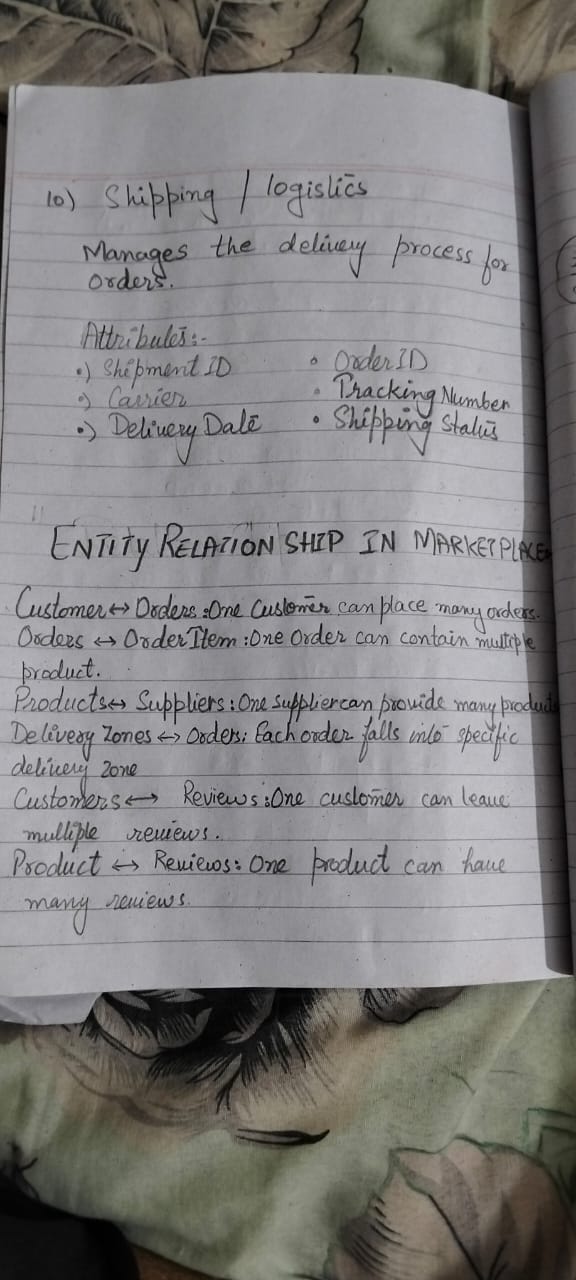 10) Shipping / logistics
Manages the delivery process for
Orders.
Attributes:-
•) Shipment ID
•) Carrier
•) Delivery Date
• Order ID
• Tracking Number
• Shipping Status
ENTITY RELATIONSHIP IN MARKETPLACE
Customer ↔ Orders : One Customer can place many orders.
Orders ↔ Order Item : One Order can contain multiple
product.
Products ↔ Suppliers : One supplier can provide many products
Delivery Zones ↔ Orders: Each order falls into specific
delivery zone
Customers ↔ Reviews : One customer can leave
multiple reviews.
Product ↔ Reviews: One product can have
many reviews.